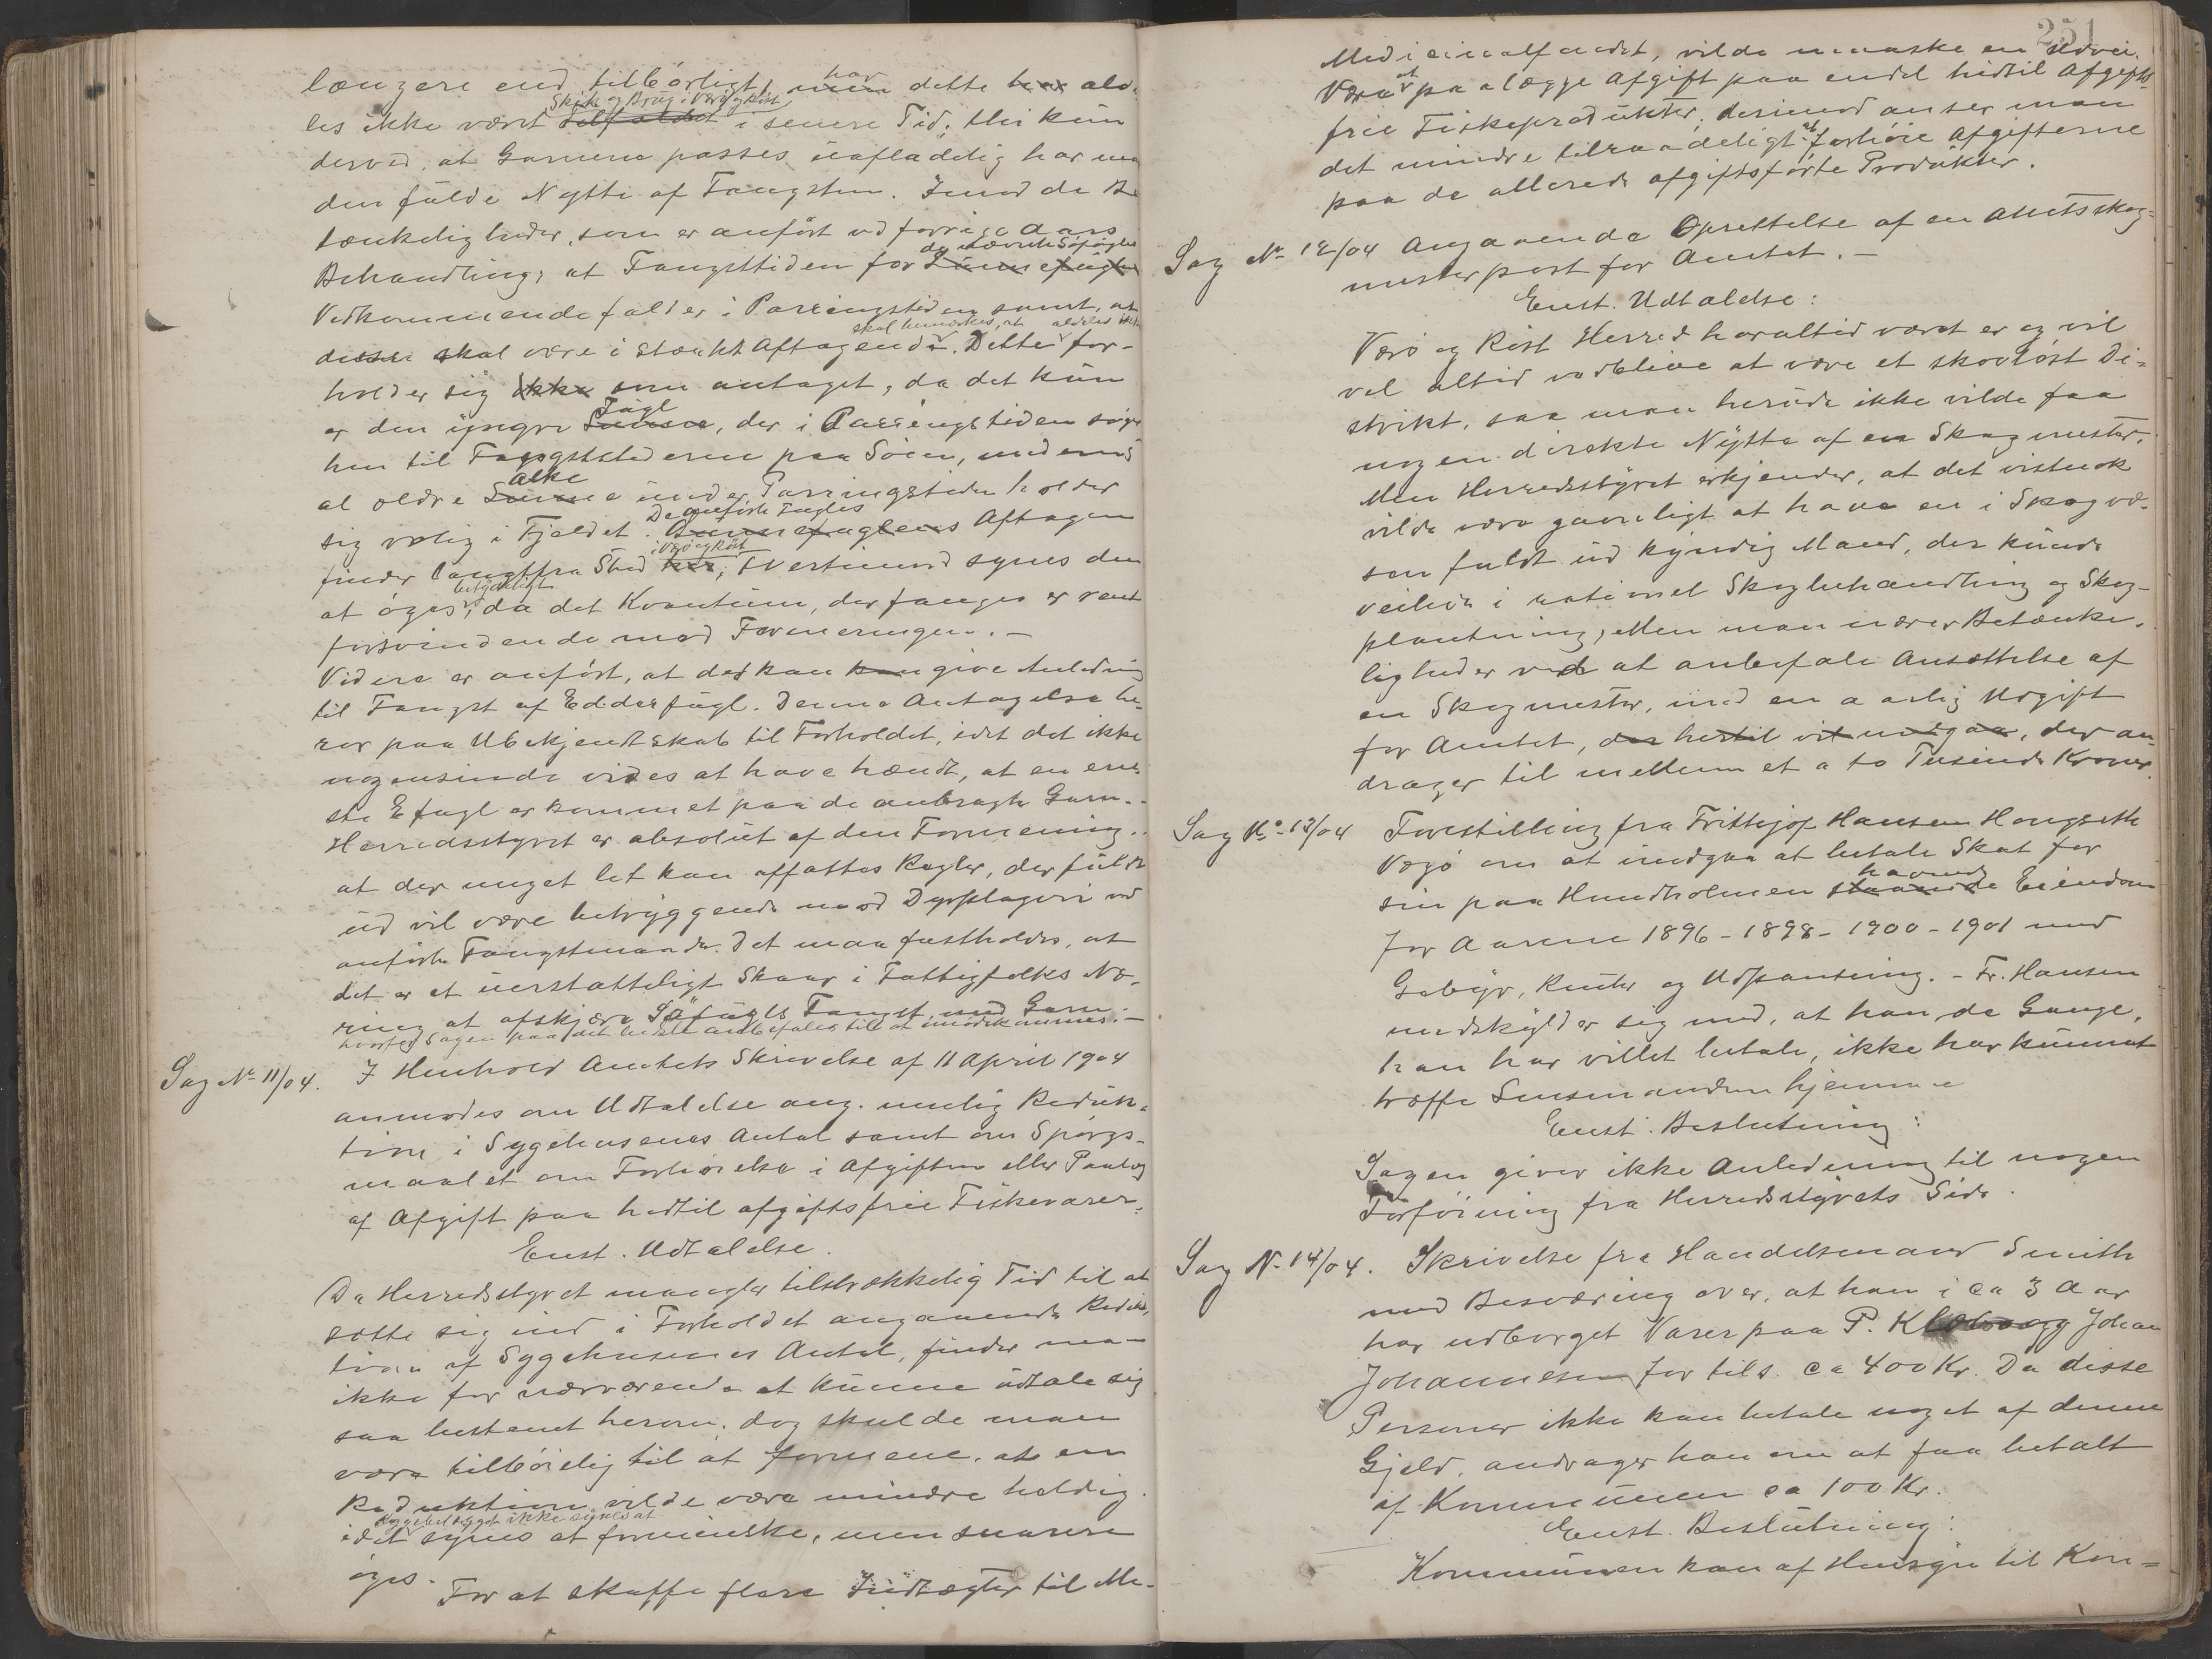 længere end tilbørligt, har dette aldeles
les ikke været Skik og Brug i Værø og Røst i senere Tid; thi kun
derved, at Garnene passes uafladelig har man
den fulde Nytte af Fangsten. Imod de Be
tænkeligheder, som er anført ved forrige Aars
Behandling, at Fangsttiden for de nævnte Søfugles
Vedkommende falder i Parringstiden samt, at
disse skal være i stærkt Aftagende skal bemærkes, at Dette aldeles ikke for-
holder sig som antaget, da det kun
er den yngre Fugl, der i Parringstiden søger
hen til Fangststederne paa Søen, medens
al ældre Alke under Parringstiden holder
sig rolig i Fjeldet. De anførte Fugles Aftagen
finder langtfra Sted i Værø og Røst, tvertimod synes den
at øges betydeligt, da det Kvantum, der fanges er rent
forsvindende mod Formeringen. –
Videre er anført, at det kan give Anledning
til Fangst af Edderfugl. Denne Antagelse be-
ror paa Ubekjendtskab til Forholdet, idet det ikke
nogensinde vides at have hændt, at en ene
ste Efugl er kommet paa de anbragte Garn. –
Herredsstyret er absolut af den Formening
at der meget let kan affattes Regler, der fuldt
ud vil være betryggende mod Dyrplageri ved
anførte Fangstmaade. Det maa fastholdes, at
det er et uerstatteligt Skaar i Fattigfolks Næ-
ring at afskjære Søfugls Fangst med Garn
hvorfor Sagen paa det bedste anbefales til at imødekommes. –
Sag No 11/04. I Henhold Amtets Skrivelse af 11 April 1904
anmodes om Udtalelse ang. mulig Reduk-
tion i Sygehusenes Antal samt om Spørgs-
maalet om Forhøielse i Afgiften eller Paalæg
af Afgift paa hidtil afgiftsfrie Fiskevarer.
Enst. Udtalelse.
Da Herredsstyret mangler tilstrækkelig Tid til at
sætte sig ind i Forholdet angaaende Reduk-
tion af Sygehusenes Antal, finder man
ikke for nærværende at kunne udtale sig
saa bestemt herom; dog skulde man
være tilbøielig til at formene, at en
Reduktion vilde være mindre heldig.
idet Sygebelægget ikke synes at formindske, men snarere
øges.
For at skaffe flere Indtægter til Me-
251
Medicinalfondet, vilde maaske en Udvei
Være at paalægge Afgift paa endel hidtil Afgifts-
frie Fiskeprodukter; derimod anser man
det mindre tilraadeligt at forhøie Afgifterne
paa de allerede afgiftsførte Produkter.
Sag No 12/04 Angaaende Oprettelse af en Amtsskog-
mesterpost for Amtet. –
Enst. Udtalelse:
Værø og Røst Herred har altid været er og vil
vel altid vedblive at være et skovløst Di-
strikt, saa man herude ikke vilde faa
nogen direkte Nytte af en Skogmester.
Men Herredsstyret erkjender, at det vistnok
vilde være gavnligt at have en i Skogvæ-
sen fuldt ud kyndig Mand, der kunde
veilede i rationel Skogbehandling og Skog-
plantning, Men man nærer Betænke-
ligheder ved at anbefale Ansættelse af
en Skogmester, med en aarlig Udgift
for Amtet, der hertil vil medgaa, der an-
drager til mellem et a to Tusinde Kroner.
Sag No 13/04 Forestilling fra Frithjof Hansen Hougseth
Værø om at undgaa at betale Skat for
sin paa Hundholmen havende Eiendom
for Aarene 1896 – 1898 – 1900 – 1901 med
Gebyr, Renter og Udpantning. – Fr. Hansen
undskylder sig med, at han de Gange,
han har villet betale, ikke har kunnet
træffe Lensmanden hjemme
Enst. Beslutning:
Sagen giver ikke Anledning til nogen
Forføining fra Herredsstyrets Side.
Sag No 14/04. Skrivelse fra Handelsmand Smith
med Besværing over, at han i ca 3 Aar
har udborget Varer paa P. Johan
Johannesen for tils. ca 400 Kr. Da disse
Personer ikke kan betale noget af denne
Gjeld, andrager han om at faa betalt
af Kommunen ca 100 Kr.
Enst. Beslutning:
Kommunen kan af Hensyn til Kon-